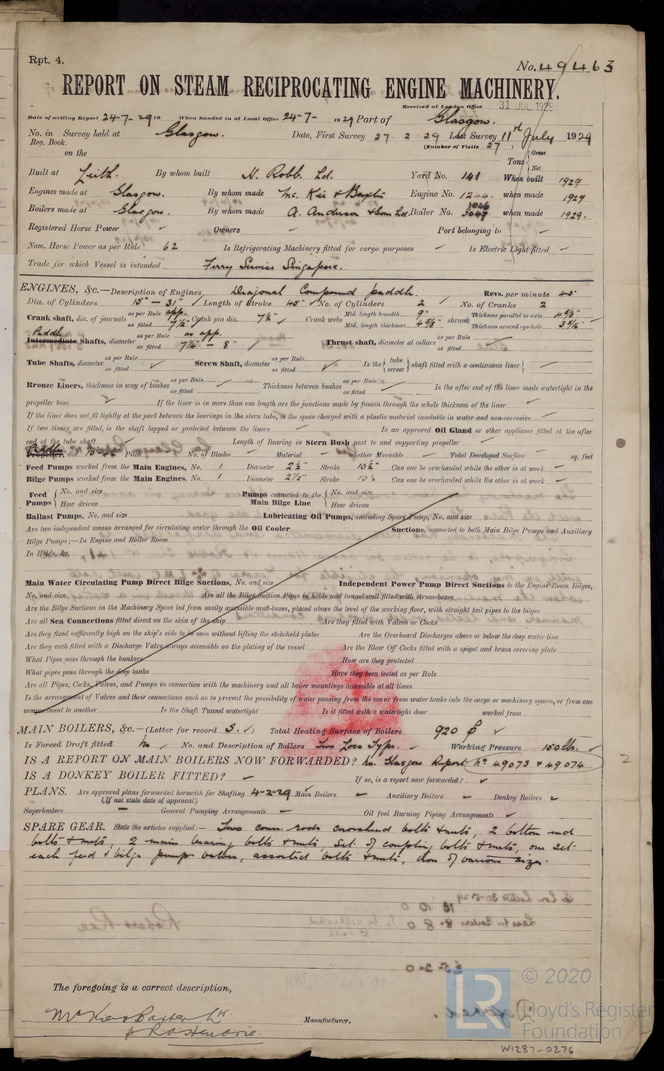 Rpt. 4.
No. 49463
REPORT ON STEAM RECIPROCATING ENGINE MACHINERY.
Received at London Office 31 JUL 1929
Date of writing Report 24-7-29 19 When handed in at Local Office 24-7-1929 Port of Glasgow.
No. in Survey held at Glasgow. Date, First Survey 27.2.29 Last Survey 11th July 1929
Reg. Book. (Number of Visits 27)
on the Tons { Gross Net
Built at Leith. By whom built H. Robb. Ld. Yard No. 141 When built 1929
Engines made at Glasgow. By whom made Mc. Kie & Baxter Engine No. when made 1929
Boilers made at Glasgow. By whom made A. Anderson & Son Ld. Boiler No. when made 1929.
Registered Horse Power Owners Port belonging to
Nom. Horse Power as per Rule 62 Is Refrigerating Machinery fitted for cargo purposes Is Electric Light fitted
Trade for which Vessel is intended Ferry Service Singapore.
ENGINES, &c.—Description of Engines Diagonal Compound paddle. Revs. per minute 45
Dia. of Cylinders 15" - 31" Length of Stroke 45" No. of Cylinders 2 No. of Cranks 2
Crank shaft, dia. of journals as per Rule app. as fitted 7½" Crank pin dia. 7½" Crank webs Mid. length breadth 9" Mid. length thickness shrunk Thickness parallel to axis Thickness around eye-hole
Paddle
Intermediate Shafts, diameter as per Rule as app. as fitted Thrust shaft, diameter at collars as per Rule as fitted
Tube Shafts, diameter as per Rule as fitted Screw Shaft, diameter as per Rule as fitted Is the { tube screw } shaft fitted with a continuous liner {
Bronze Liners, thickness in way of bushes as per Rule as fitted Thickness between bushes as per Rule as fitted Is the after end of the liner made watertight in the
propeller boss If the liner is in more than one length are the junctions made by fusion through the whole thickness of the liner
If the liner does not fit tightly at the part between the bearings in the stern tube, is the space charged with a plastic material insoluble in water and non-corrosive
If two liners are fitted, is the shaft lapped or protected between the liners Is an approved Oil Gland or other appliance fitted at the after
end of the tube shaft Length of Bearing in Stern Bush next to and supporting propeller
Pitch No. of Blades Material whether Moveable Total Developed Surface sq. feet
Feed Pumps worked from the Main Engines, No. 1 Diameter 2½" Stroke 10½" Can one be overhauled while the other is at work
Bilge Pumps worked from the Main Engines, No. 1 Diameter 2½" Stroke 10½ Can one be overhauled while the other is at work
Feed Pumps { No. and size How driven Pumps connected to the Main Bilge Line { No. and size How driven
Ballast Pumps, No. and size Lubricating Oil Pumps, including Spare Pump, No. and size
Are two independent means arranged for circulating water through the Oil Cooler Suctions, connected to both Main Bilge Pumps and Auxiliary
Bilge Pumps;—In Engine and Boiler Room
In Holds, &c.
Main Water Circulating Pump Direct Bilge Suctions, No. and size Independent Power Pump Direct Suctions to the Engine Room Bilges,
No. and size Are all the Bilge Suction Pipes in holds and tunnel well fitted with strum-boxes
Are the Bilge Suctions in the Machinery Space led from easily accessible mud-boxes, placed above the level of the working floor, with straight tail pipes to the bilges
Are all Sea Connections fitted direct on the skin of the ship Are they fitted with Valves or Cocks
Are they fixed sufficiently high on the ship's side to be seen without lifting the stokehold plates Are the Overboard Discharges above or below the deep water line
Are they each fitted with a Discharge Valve always accessible on the plating of the vessel Are the Blow Off Cocks fitted with a spigot and brass covering plate
What Pipes pass through the bunkers How are they protected
What pipes pass through the deep tanks Have they been tested as per Rule
Are all Pipes, Cocks, Valves, and Pumps in connection with the machinery and all boiler mountings accessible at all times
Is the arrangement of Valves and their connections such as to prevent the possibility of water passing from the sea or from water tanks into the cargo or machinery spaces, or from one
compartment to another Is the Shaft Tunnel watertight Is it fitted with a watertight door worked from
MAIN BOILERS, &c.—(Letter for record S.) Total Heating Surface of Boilers 920
Is Forced Draft fitted No. No. and Description of Boilers Two Loco Type. Working Pressure 150 lbs.
IS A REPORT ON MAIN BOILERS NOW FORWARDED? No. Glasgow Report No 49073 & 49074
IS A DONKEY BOILER FITTED? If so, is a report now forwarded?
PLANS. Are approved plans forwarded herewith for Shafting 4-2-29 Main Boilers Auxiliary Boilers Donkey Boilers
(If not state date of approval)
Superheaters General Pumping Arrangements Oil fuel Burning Piping Arrangements
SPARE GEAR. State the articles supplied:— Two conn. rods crosshead bolts & nuts, 2 bottom end
bolts & nuts. 2 main bearing bolts & nuts. Set of coupling bolts & nuts, one set
each feed & bilge pump valves, assorted bolts & nuts, iron of various sizes.
The foregoing is a correct description,
Manufacturer.
LR
© 2020
Lloyd's Register
Foundation
W1287-0276